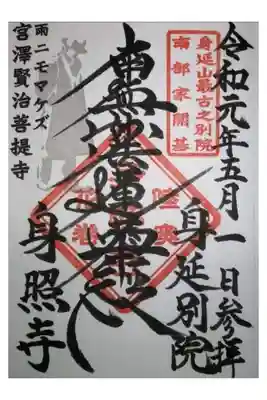 令和元年五月一日参拝
身延山最古之別院
南部家開基
身延別院
南無妙法蓮華経
身照寺
雨ニモマケズ
宮澤賢治菩提寺